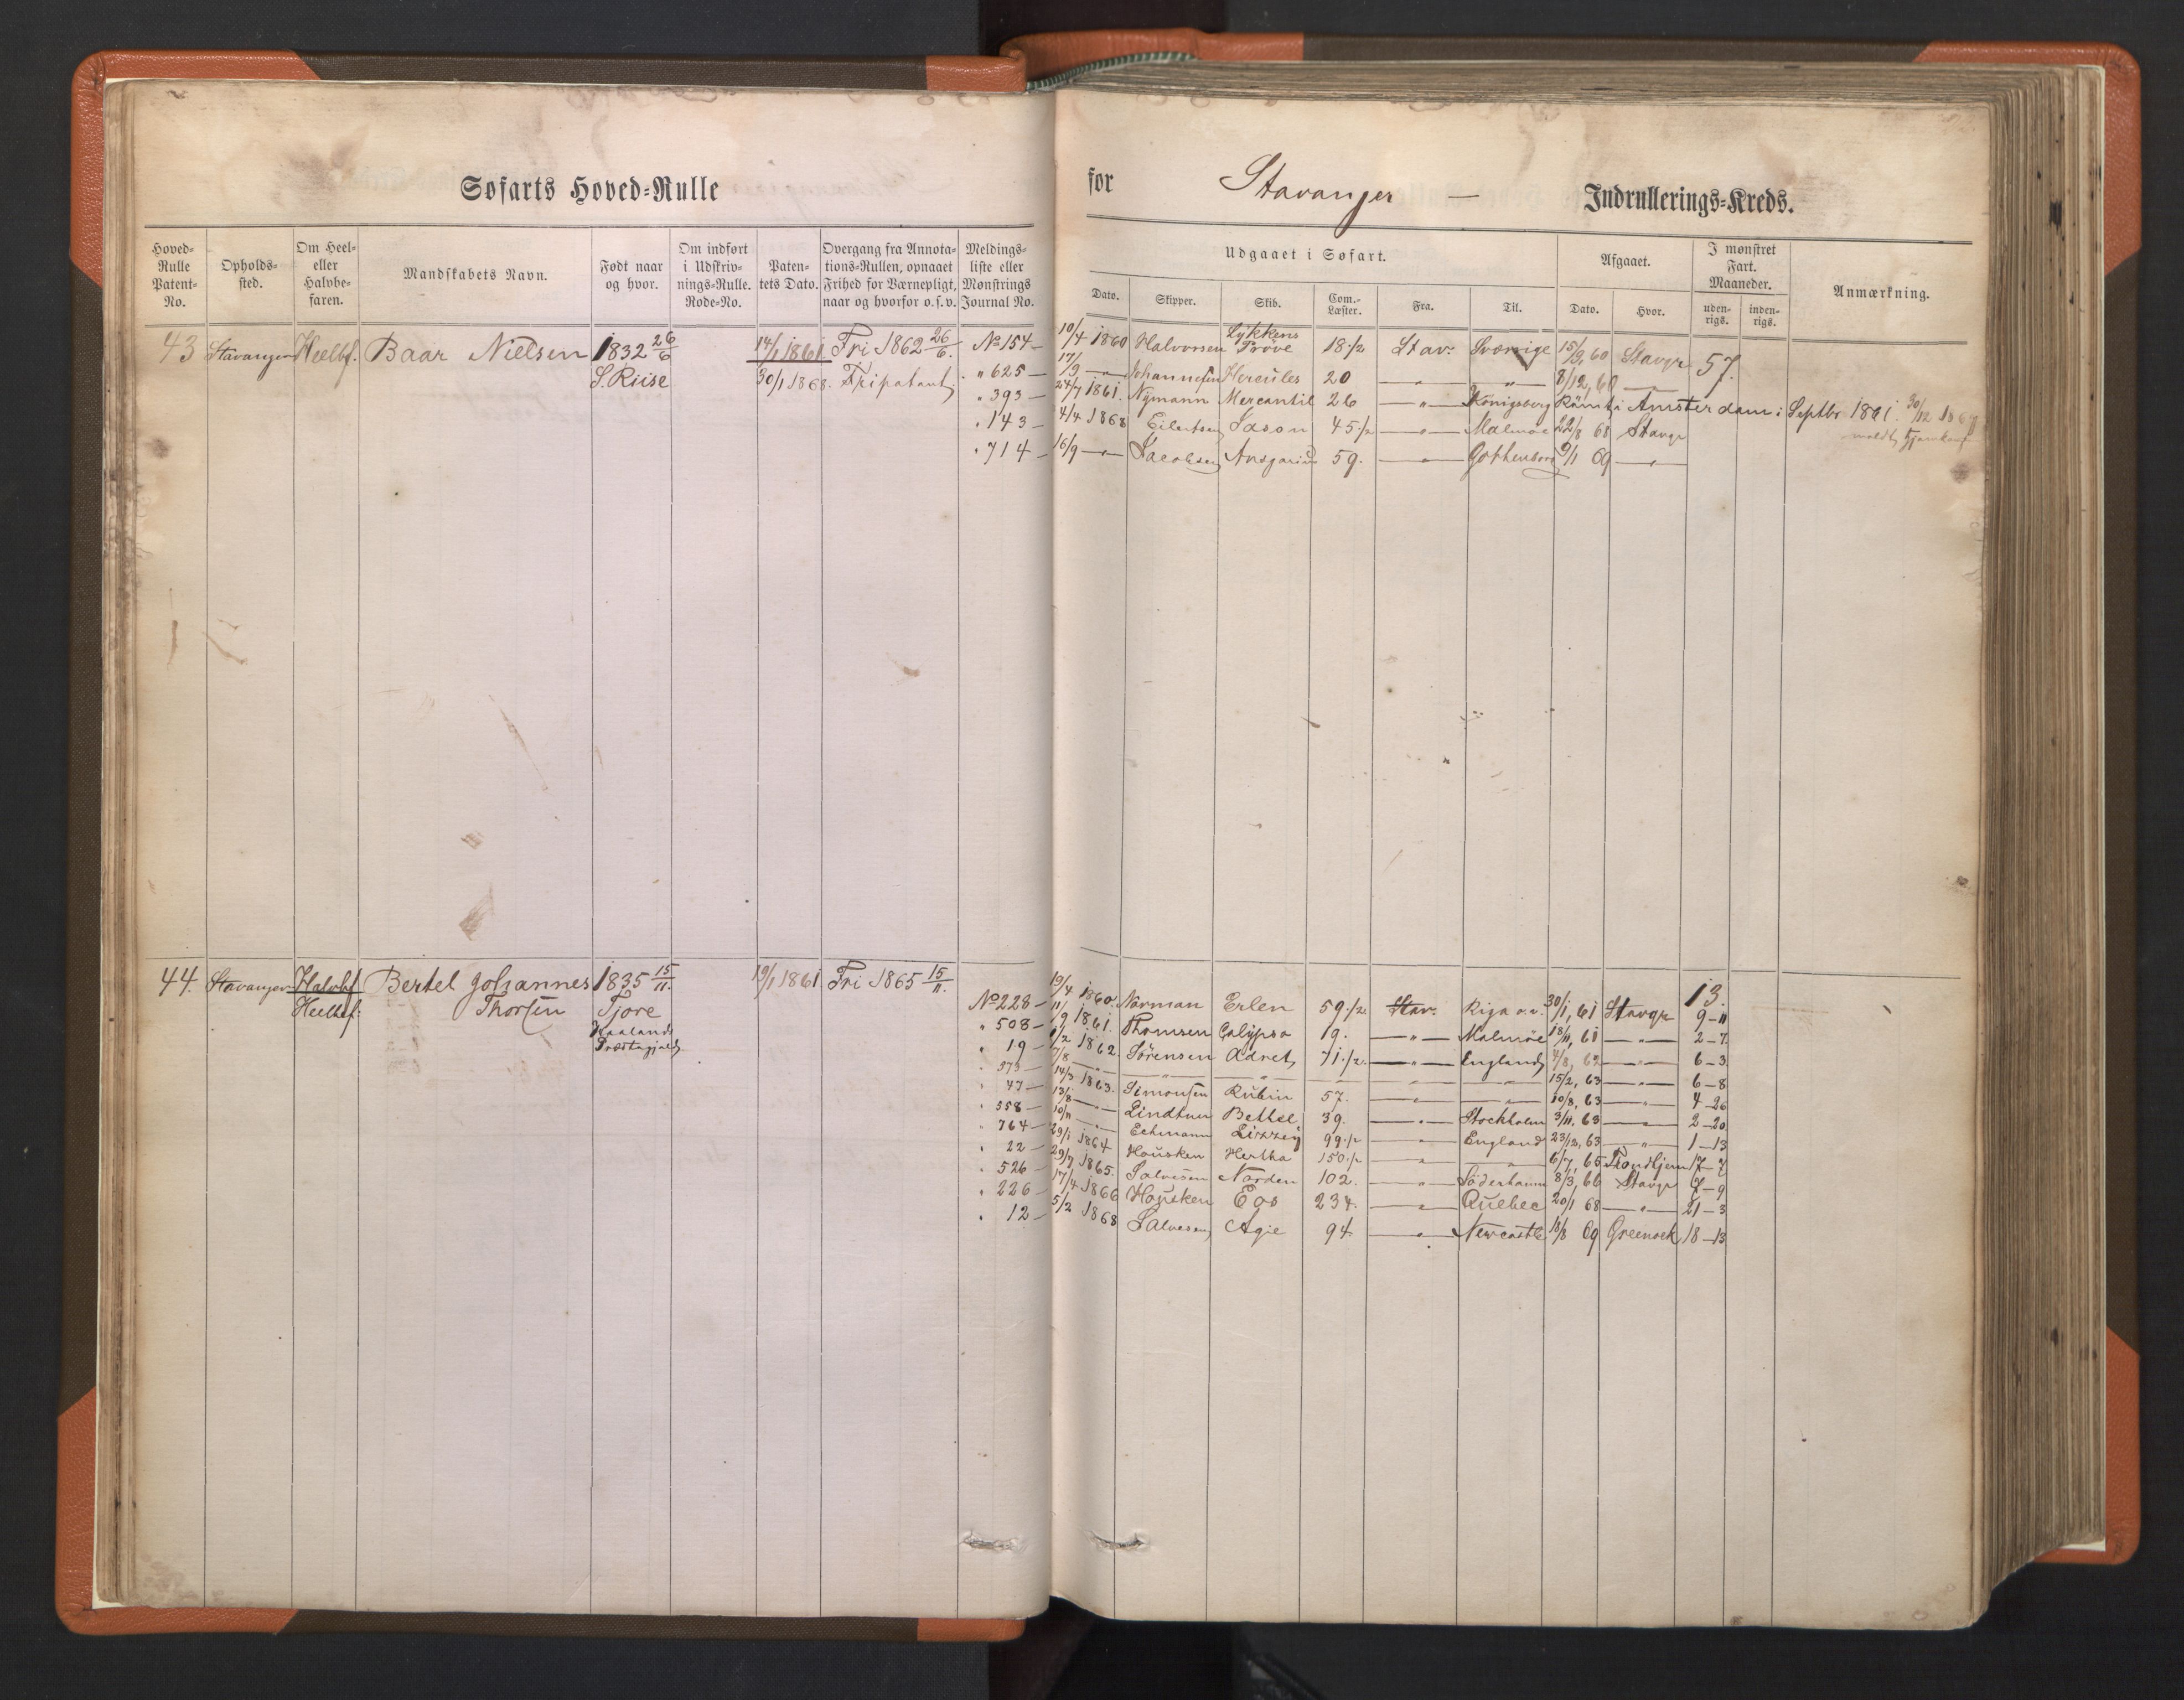 Søfarts Hoved-Rulle
for Stavanger — Indrullerings-Kreds.
Hoved-Rulle Patent-No.
Opholds-sted.
Om Heel- eller Halvbe-faren.
Mandskabets Navn.
Født naar og hvor.
Om indført i Udskriv-nings-Rulle. Rode-No.
Paten-tets Dato.
Overgang fra Annota-tions-Rullen, opnaaet Frihed for Værnepligt, naar og hvorfor o.s.v.
Meldings-liste eller Mønstrings Journal No.
Udgaaet i Søfart.
Dato. Skipper. Skib. Com.-Læster. Fra. Til.
Afgaaet.
Dato. Hvor.
I mønstret Fart. Maaneder.
uden-rigs. inden-rigs.
Anmærkning.
43 Stavanger Heelbf. Baar Nielsen 1832 26/6 14/1 1861 Fri 1862 26/6. No 154 — 10/4 1860 Halvorsen Lykkens Prøve 18 1/2 Stav: Sverrige 15/9, 60 Stavgr 57.
S. Riise 30/1 1868. Fripatent, " 625 — 17/9 —"— Johannesen Hercules 20 —"— —"— 8/12, 60 —"—
" 393 — 24/7 1861. Nymann Mercantil 26 —"— Königsberg Römt i Amsterdam i Septbr 1861. 30/12 1869
" 143 — 4/4 1868 Eilertsen Jason 45 1/2 —"— Malmøe 22/8 68 Stavgr
" 714 — 16/9 —"— Jacobsen Ansgarius 59. —"— Gothenborg 9/1 69 —"—
44. Stavanger Halvbf. Bertel Johannes 1835 15/11. 19/1 1861 Fri 1865 15/11. 13.
Heelbf: Thorsen Tjore
Haalands Præstegjeld,
No 228 — 19/4 1860. Norman Erlen 59 1/2 Stav: Riga o.v. 30/1, 61 Stavgr 9-11
" 508 — 1861. Thomsen Calypso 19. —"— Malmöe 18/11, 61 —"— 2-7
" 19 — 1/2 1862. Sørensen Adret, 71 1/2. —"— England, 7/8, 62 —"— 6-3
" 373 — 7/8 —"— —"— —"— — —"— —"— 15/2, 63 —"— 6-8
" 47 — 14/3 1863. Simonsen Rubin 57. —"— —"— 10/8, 63 —"— 4-26
" 558 — 13/8 —"— Lindtner Bethel 39. —"— Stockholm 3/11, 63 —"— 2-20
" 764 — 10/11 —"— Echmann Lizzy 99 1/2 —"— England 23/12, 63 —"— 1-13
" 22 — 29/1 1864 Housken Hertha 150 1/2 —"— —"— 6/7, 65 Trondhjem 17-7
" 526 — 29/7 1865. Salvesen Norden 102. —"— Söderhamn 8/3, 66 Stavgr 7-9
" 226 — 17/4 1866 Housken Eos 234. —"— Quebec 20/1 68 —"— 21-3
" 12 — 5/2 1868 Salvesen, Agie 94 —"— Newcastle 18/8 69 Greenock 18-13